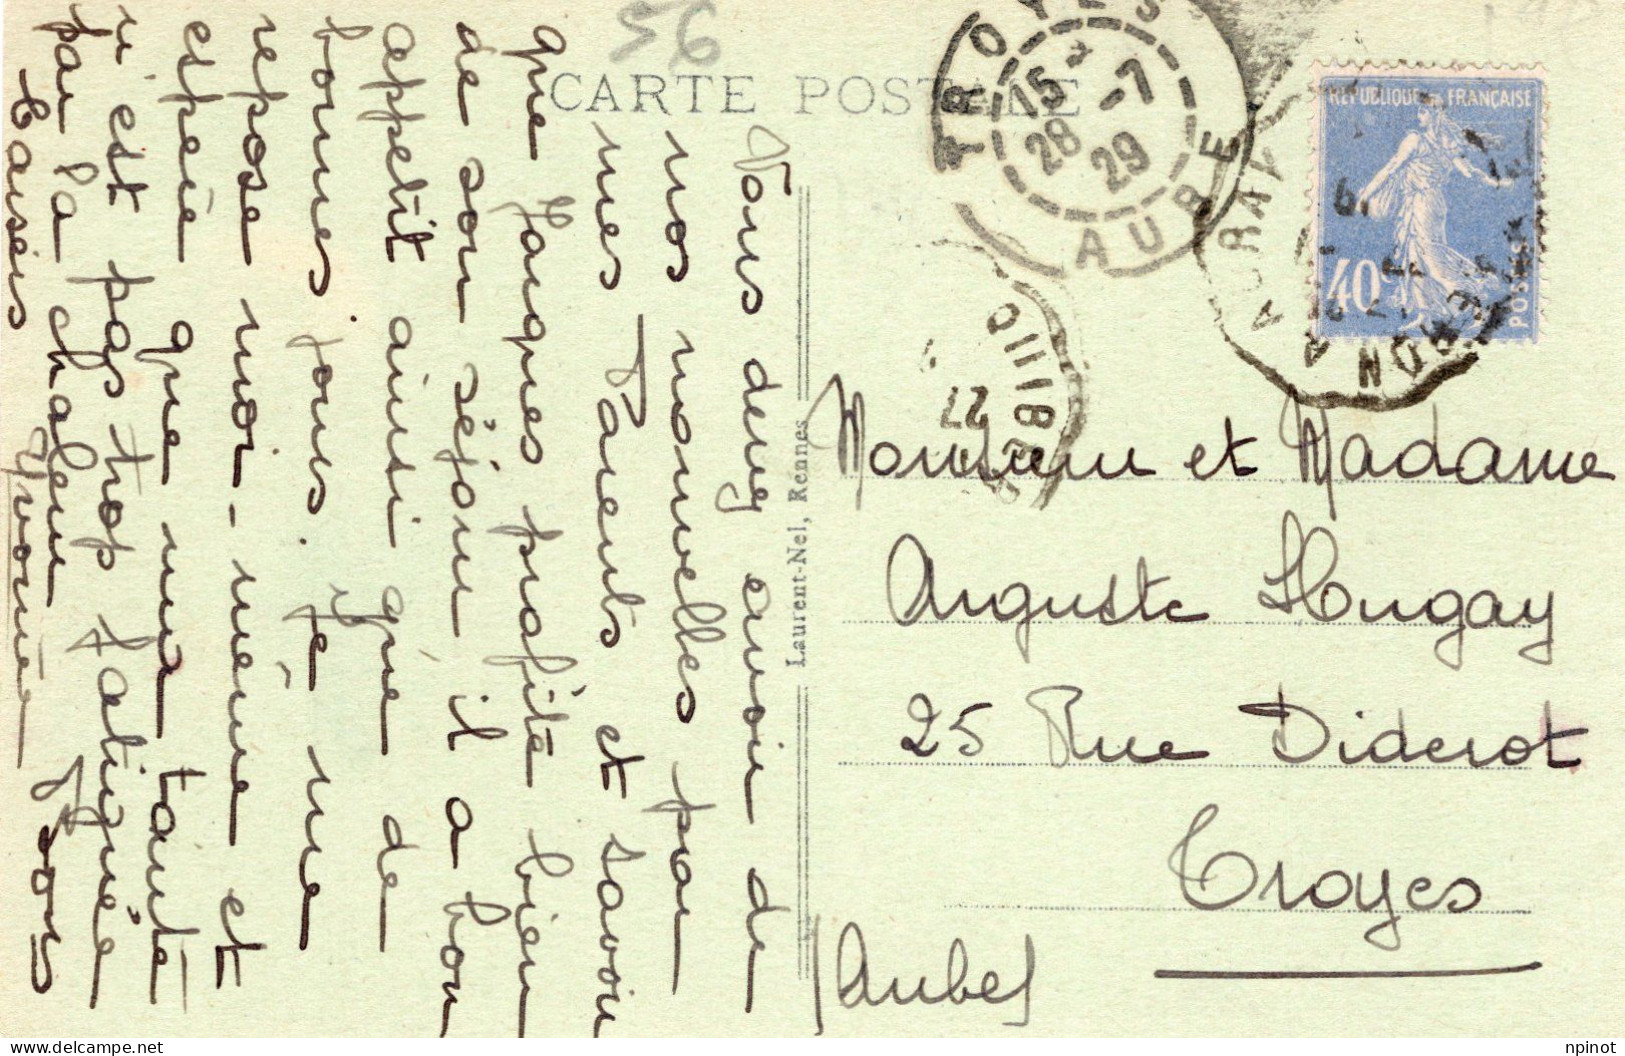 56
CARTE POSTALE
TROYES
15
28 -7
29
AUBE
REPUBLIQUE FRANÇAISE
40
POSTES
27
Vous deux avoir de
nos nouvelles par
mes Parents et savoir
que Jacques profite bien
de son séjour il a bon
appetit ainsi que de
bonnes joues. Je me
repose moi-même et
espère que ma tante
n'est pas trop fatiguée
par la chaleur Bons
Baisers Yvonne
Laurent-Nel, Rennes
Monsieur et Madame
Auguste Hugay
25 Rue Diderot
Troyes
(Aube)
npinot